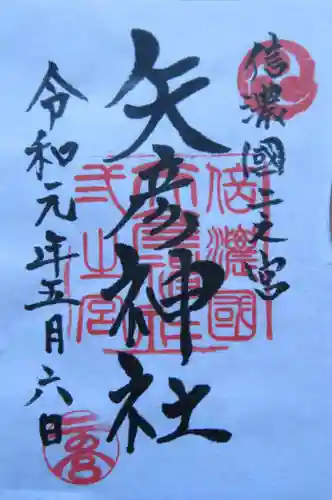 信濃國二之宮
矢彦神社
令和元年五月六日
信濃國
二之宮